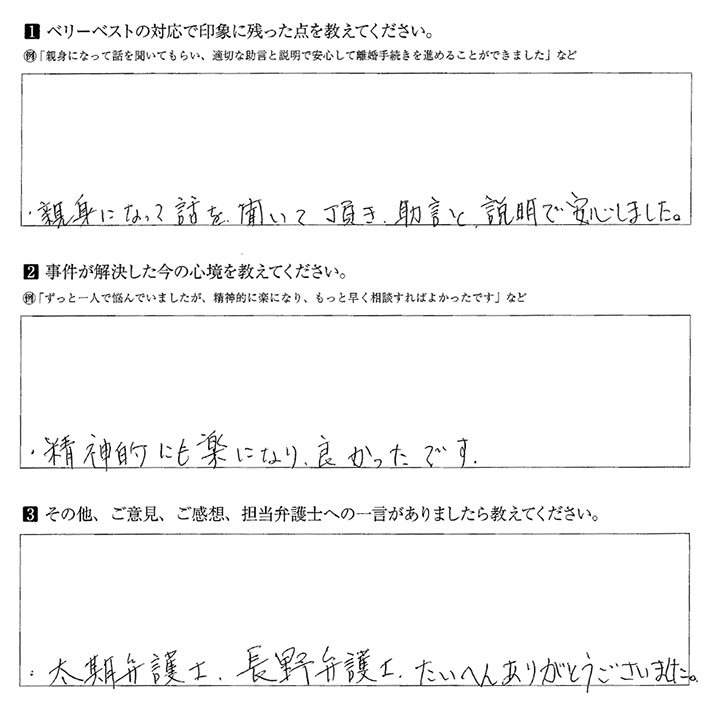 1 ベリーベストの対応で印象に残った点を教えてください。
例「親身になって話を聞いてもらい、適切な助言と説明で安心して離婚手続きを進めることができました」など
・親身になって話を、聞いて頂き、助言と、説明で安心しました。
2 事件が解決した今の心境を教えてください。
例「ずっと一人で悩んでいましたが、精神的に楽になり、もっと早く相談すればよかったです」など
・精神的にも楽になり、良かったです.
3 その他、ご意見、ご感想、担当弁護士への一言がありましたら教えてください。
：太期弁護士、長野弁護士、たいへんありがとうございました。